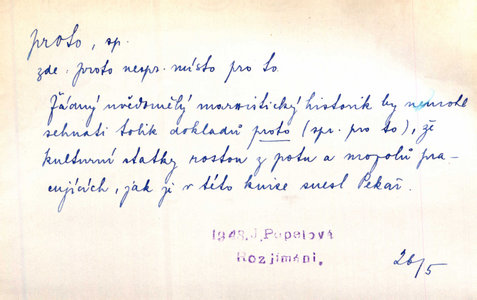 proto, sp.
zde: proto nespr. místo pro to
Žádný uvědomělý marxistický historik by nemohl
sehnati tolik dokladů proto (spr. pro to), že
kulturní statky rostou z potu a mozolů pra-
cujících, jak ji v této knize snesl Pekař.
1948, J. Popelová
Rozjímání.
26/5